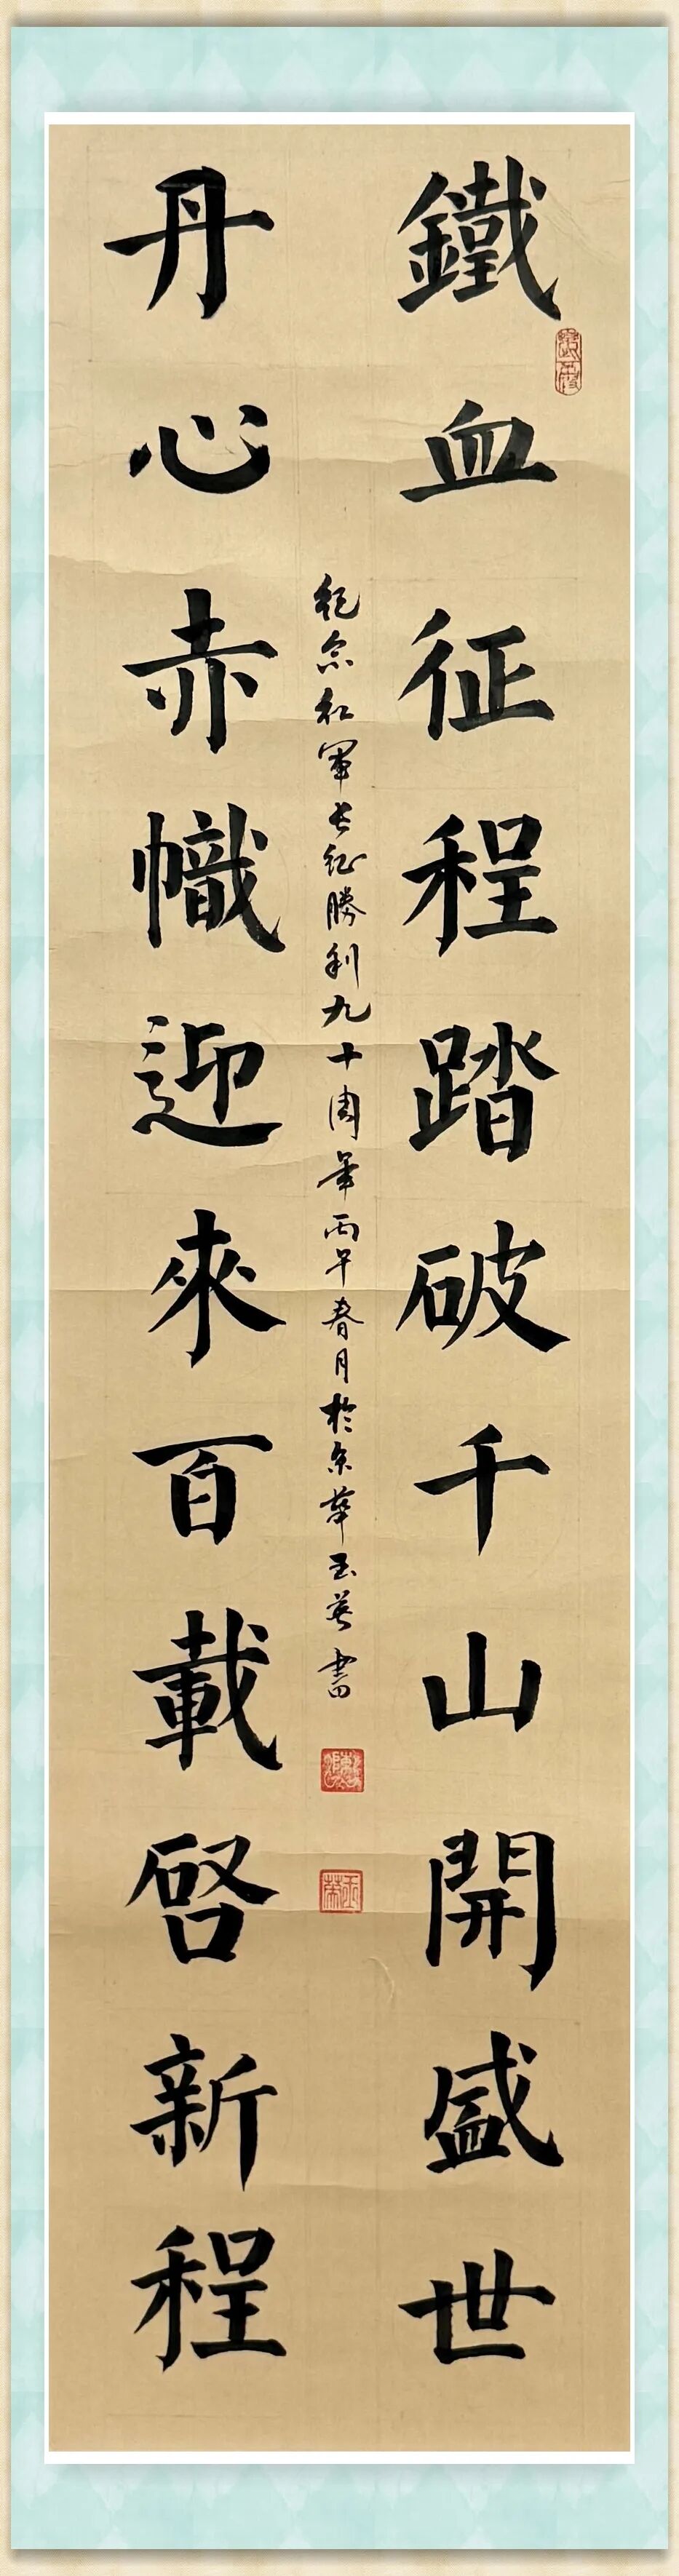 鐵血征程踏破千山開盛世
紀念紅軍長征勝利九十周年丙午春月於京華玉英書
丹心赤幟迎來百載啓新程